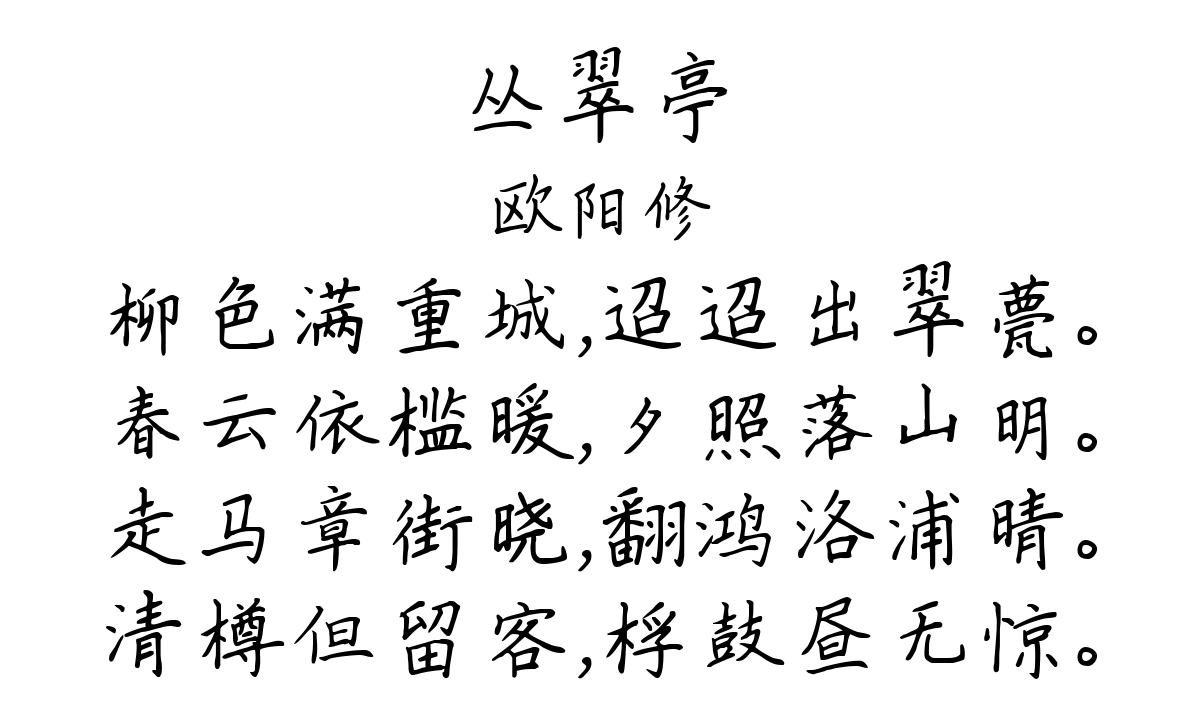 丛翠亭
欧阳修
柳色满重城,迢迢出翠甍。
春云依槛暖,夕照落山明。
走马章街晓,翻鸿洛浦晴。
清樽但留客,桴鼓昼无惊。